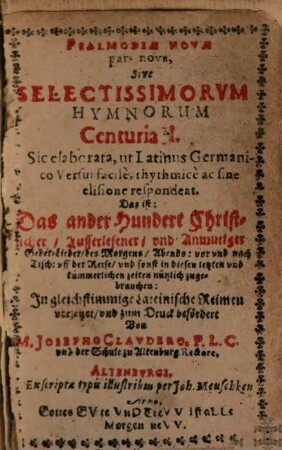 PSALMODIÆ NOVÆ
pars nova,
Sive
SELECTISSIMORVM
HYMNORUM
Centuria I.
Sic elaborata, ut Latinus Germani-
co Versui facilè, rhythmicè ac sine
elisione respondeat.
Das ist:
Das ander Hundert Christ-
licher / Auserlesener / vnd Anmutiger
Gebet-Lieder / des Morgens / Abends: vor vnd nach
Tisch: uff der Reise / vnd sonst in diesen letzten vnd
kümmerlichen zeiten nützlich zuge-
brauchen:
In gleichstimmige Lateinische Reimen
versetzet / vnd zum Druck befördert
Von
M. JOSEPHO CLAUDERO, P. L. C.
vnd der Schule zu Altenburg Rectore,
ALTENBURGI,
Exscripta typis illustribus per Joh. Meuschken
Anno,
Gottes GVte VnD TreVV ist aLLe
Morgen neVV.